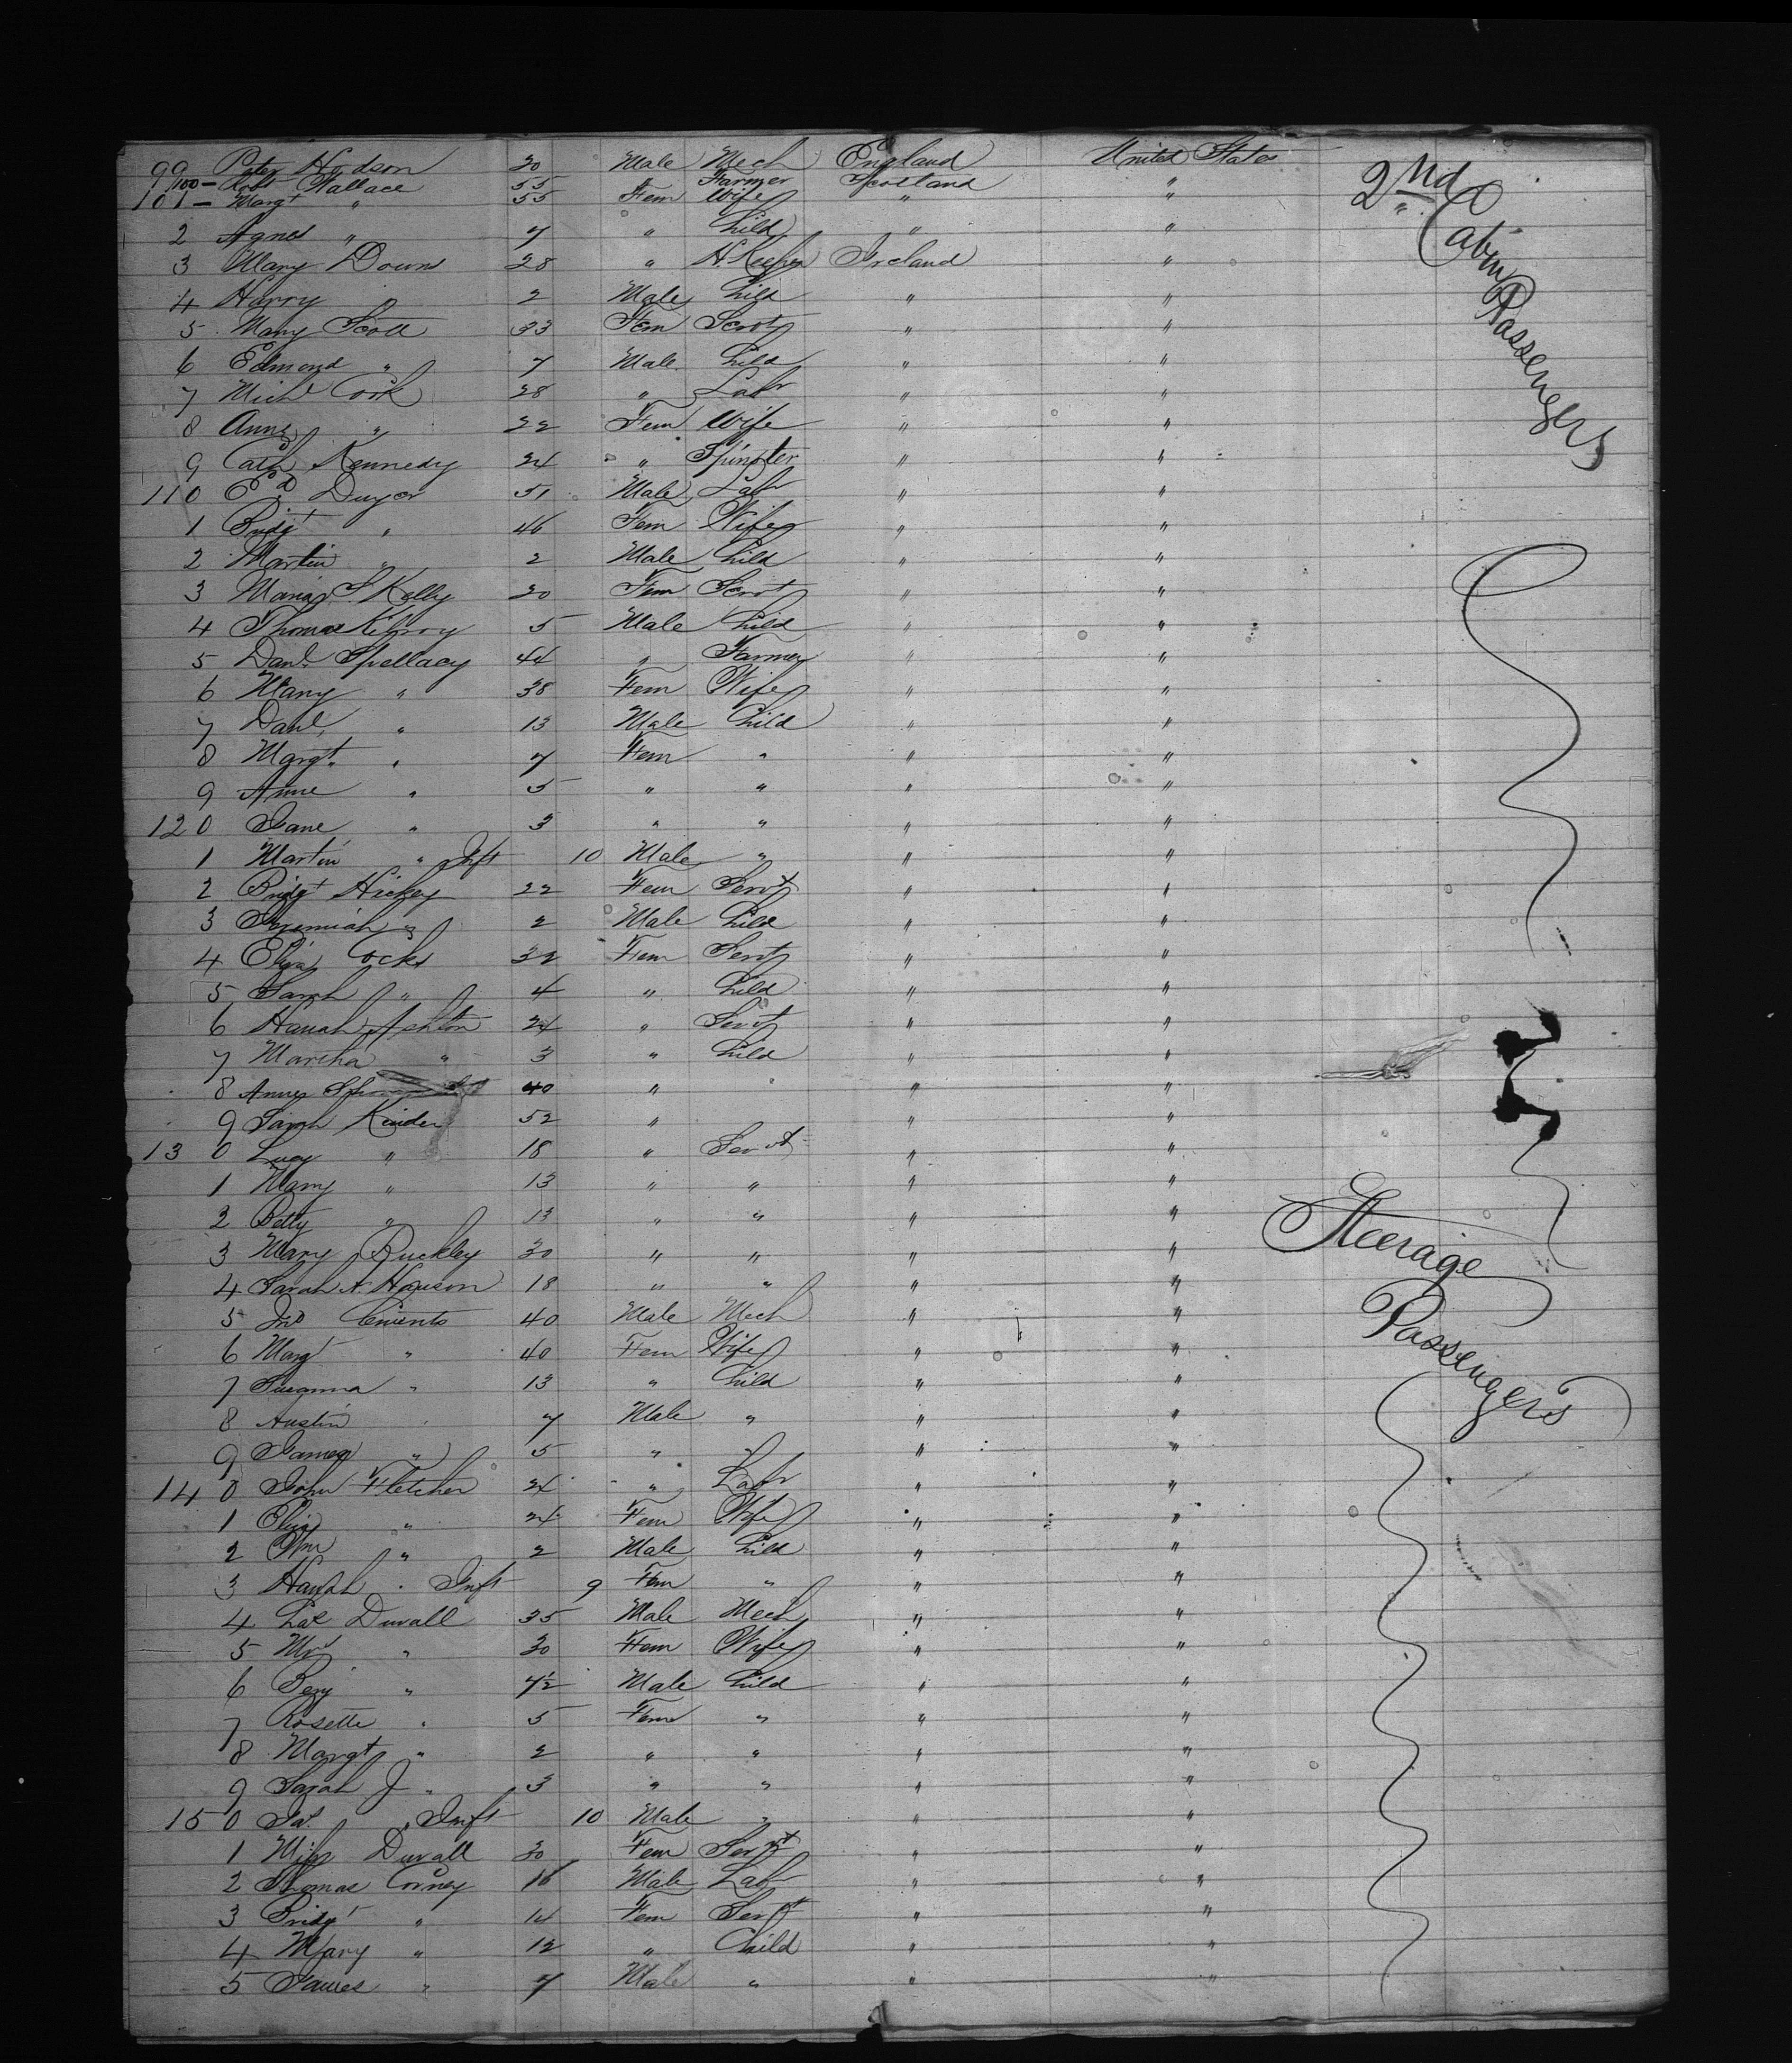 99 Peter Hodson 30 Male Mech England United States
100 - Robt Wallace 55 " Farmer Scotland "
101 - Margt " 55 Fem Wife " "
2 Agnes " 7 " Child " "
3 Mary Downs 28 " H. Keeper Ireland "
4 Harry 2 Male Child " "
5 Mary Scott 33 Fem Servt " "
6 Edmond " 7 Male Child " "
7 Michl Cook 28 " Labr " "
8 Anne " 22 Fem Wife " "
9 Cath Kennedy 24 " Spinster " "
110 Ed Dwyer 51 Male Labr " "
1 Bridgt " 46 Fem Wife " "
2 Martin " 2 Male Child " "
3 Maria S. Kelly 20 Fem Servt " "
4 Thomas Kilroy 5 Male Child " "
5 Danl. Spellacy 44 " Farmer " "
6 Mary " 38 Fem Wife " "
7 Danl. " 13 Male Child " "
8 Margt. " 7 Fem " " "
9 Anne " 5 " " " "
120 Jane " 3 " " " "
1 Martin " Inft 10 Male " " "
2 Bridgt Hickey 22 Fem Servt " "
3 Jeremiah " 2 Male Child " "
4 Eliza Cocks 32 Fem Servt " "
5 Sarah " 4 " Child " "
6 Hanah Ashton 24 " Servt " "
7 Martha " 3 " Child " "
8 Annes 40 " " " "
9 Sarah Kinder 52 " " "
130 Lucy " 18 " Servt " "
1 Mary " 13 " " " "
2 Betty " 13 " " " "
3 Mary Buckley 30 " " " "
4 Sarah A. Howson 18 " " " "
5 Jno 40 Male Mech " "
6 Margt " 40 Fem Wife " "
7 Susanna " 13 " Child " "
8 Austin " 7 Male " " "
9 James " 5 " " " "
140 John Fletcher 24 " Labr " "
1 Eliza " 24 Fem Wife " "
2 Wm " 2 Male Child " "
3 Hanah " Inft 9 Fem " " "
4 Duvall 35 Male Mech " "
5 Mrs " 30 Fem Wife " "
6 Benj " 7½ Male Child " "
7 Rosette " 5 Fem " " "
8 Margt " 2 " " " "
9 Sarah J " 3 " " " "
150 Jas " Inft 10 Male " " "
1 Miss Duvall 30 Fem Servt " "
2 Thomas Corney 16 Male Labr " "
3 Bridgt " 14 Fem Servt " "
4 Mary " 12 " Child " "
5 James " 7 Male " " "
2nd Cabin Passengers
Steerage
Passengers